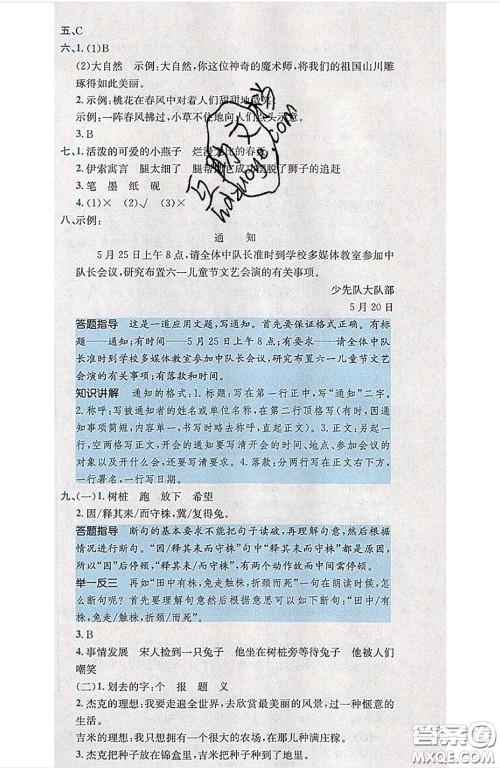 五、C
六、1.(1)B
(2)大自然 示例:大自然,你这位神奇的魔术师,将我们的祖国山川雕
琢得如此美丽。
2.示例:桃花在春风中对着人们甜甜地微笑。
示例:一阵春风拂过,小草不住地向人们点头示意。
3.B
七、1.活泼的可爱的小燕子 烂漫无比的春天
2.伊索寓言 腿太细了 腿帮助它成功摆脱了狮子的追赶
3.笔 墨 纸 砚
4.(1)× (2)√ (3)×
八、示例:
通 知
5月25日上午8点,请全体中队长准时到学校多媒体教室参加中
队长会议,研究布置六一儿童节文艺会演的有关事项。
少先队大队部
5月20日
答题指导 这是一道应用文题,写通知。首先要保证格式正确。有标
题——通知;有时间——5月25日上午8点;有要求——请全体中队
长准时到学校多媒体教室参加中队长会议,研究布置六一儿童节文艺
会演的有关事项;有落款和时间。
知识讲解 通知的格式:1.标题:写在第一行正中,写“通知”二字。
2.称呼:写被通知者的姓名或单位名称,在第二行顶格写(有时,因通
知事项简短,内容单一,书写时略去称呼,直起正文)。3.正文:另起一
行,空两格写正文,开会的通知要写清开会的时间、地点、参加会议的
对象以及开什么会,还要写清要求。4.落款:分两行写在正文右下方,
一行署名,一行写日期。
九、(一)1.树桩 跑 放下 希望
2.因/释其耒/而守株,冀/复得兔。
答题指导 断句的基本要求不能把句子读破,再理解句意,然后根据
情况进行断句。“因/释其耒而守株”句中“释其耒而守株”是“因”的结果,
所以“因”后停顿,“释其耒/而守株”,有两个动作故而中间需停顿。
举一反三 再如“田中有株,兔走触株,折颈而死”一句在朗读时候,怎
么断句呢?首先要理解句意然后可以梳理如下断句:“田中/有
株,兔走/触株,折颈/而死”。
3.B
4.事情发展 宋人捡到一只兔子 他坐在树桩旁等待兔子 他被人们
嘲笑
(二)1.划去的字:个 报 题 义
2.杰克的理想:我要走遍全世界,去欣赏最美丽的风景,过一种惬意的
生活。
吉米的理想:我想拥有一个很大的农场,在那里,享受丰收的喜悦。
3.杰克把种子放在锦盒里,吉米把种子种到了地里。
互动文档
hdzuoye.com
答案圈
MXQE.COM